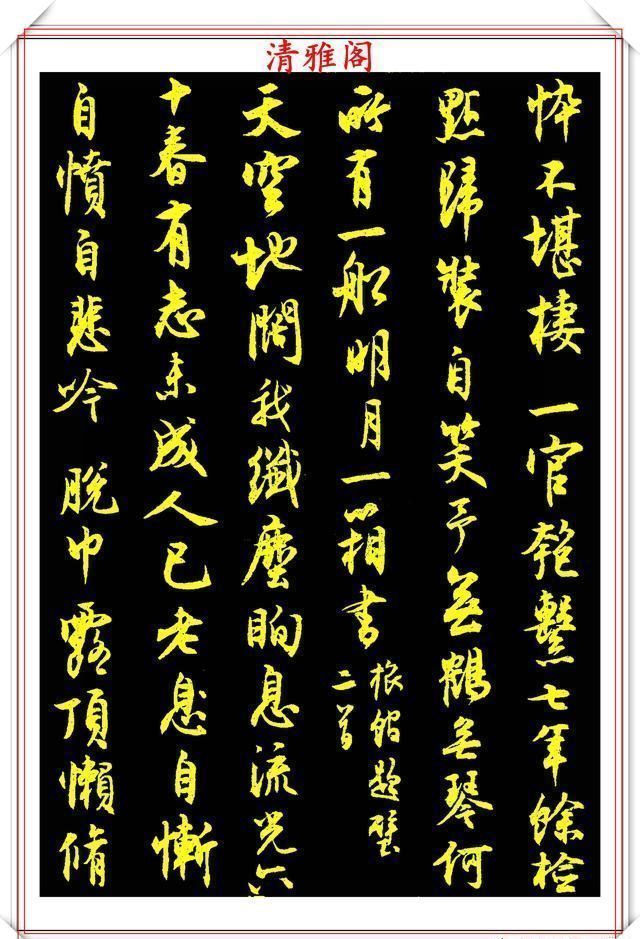 清雅阁
悴不堪棲一官匏繫七年餘檢
點歸裝自笑予無鶴無琴何
所有一船明月一箱書
旅館題壁
二首
天空地闊我纖塵眴息流光六
十春有志未成人已老息自慚
自憤自悲吟脫巾露頂懶脩